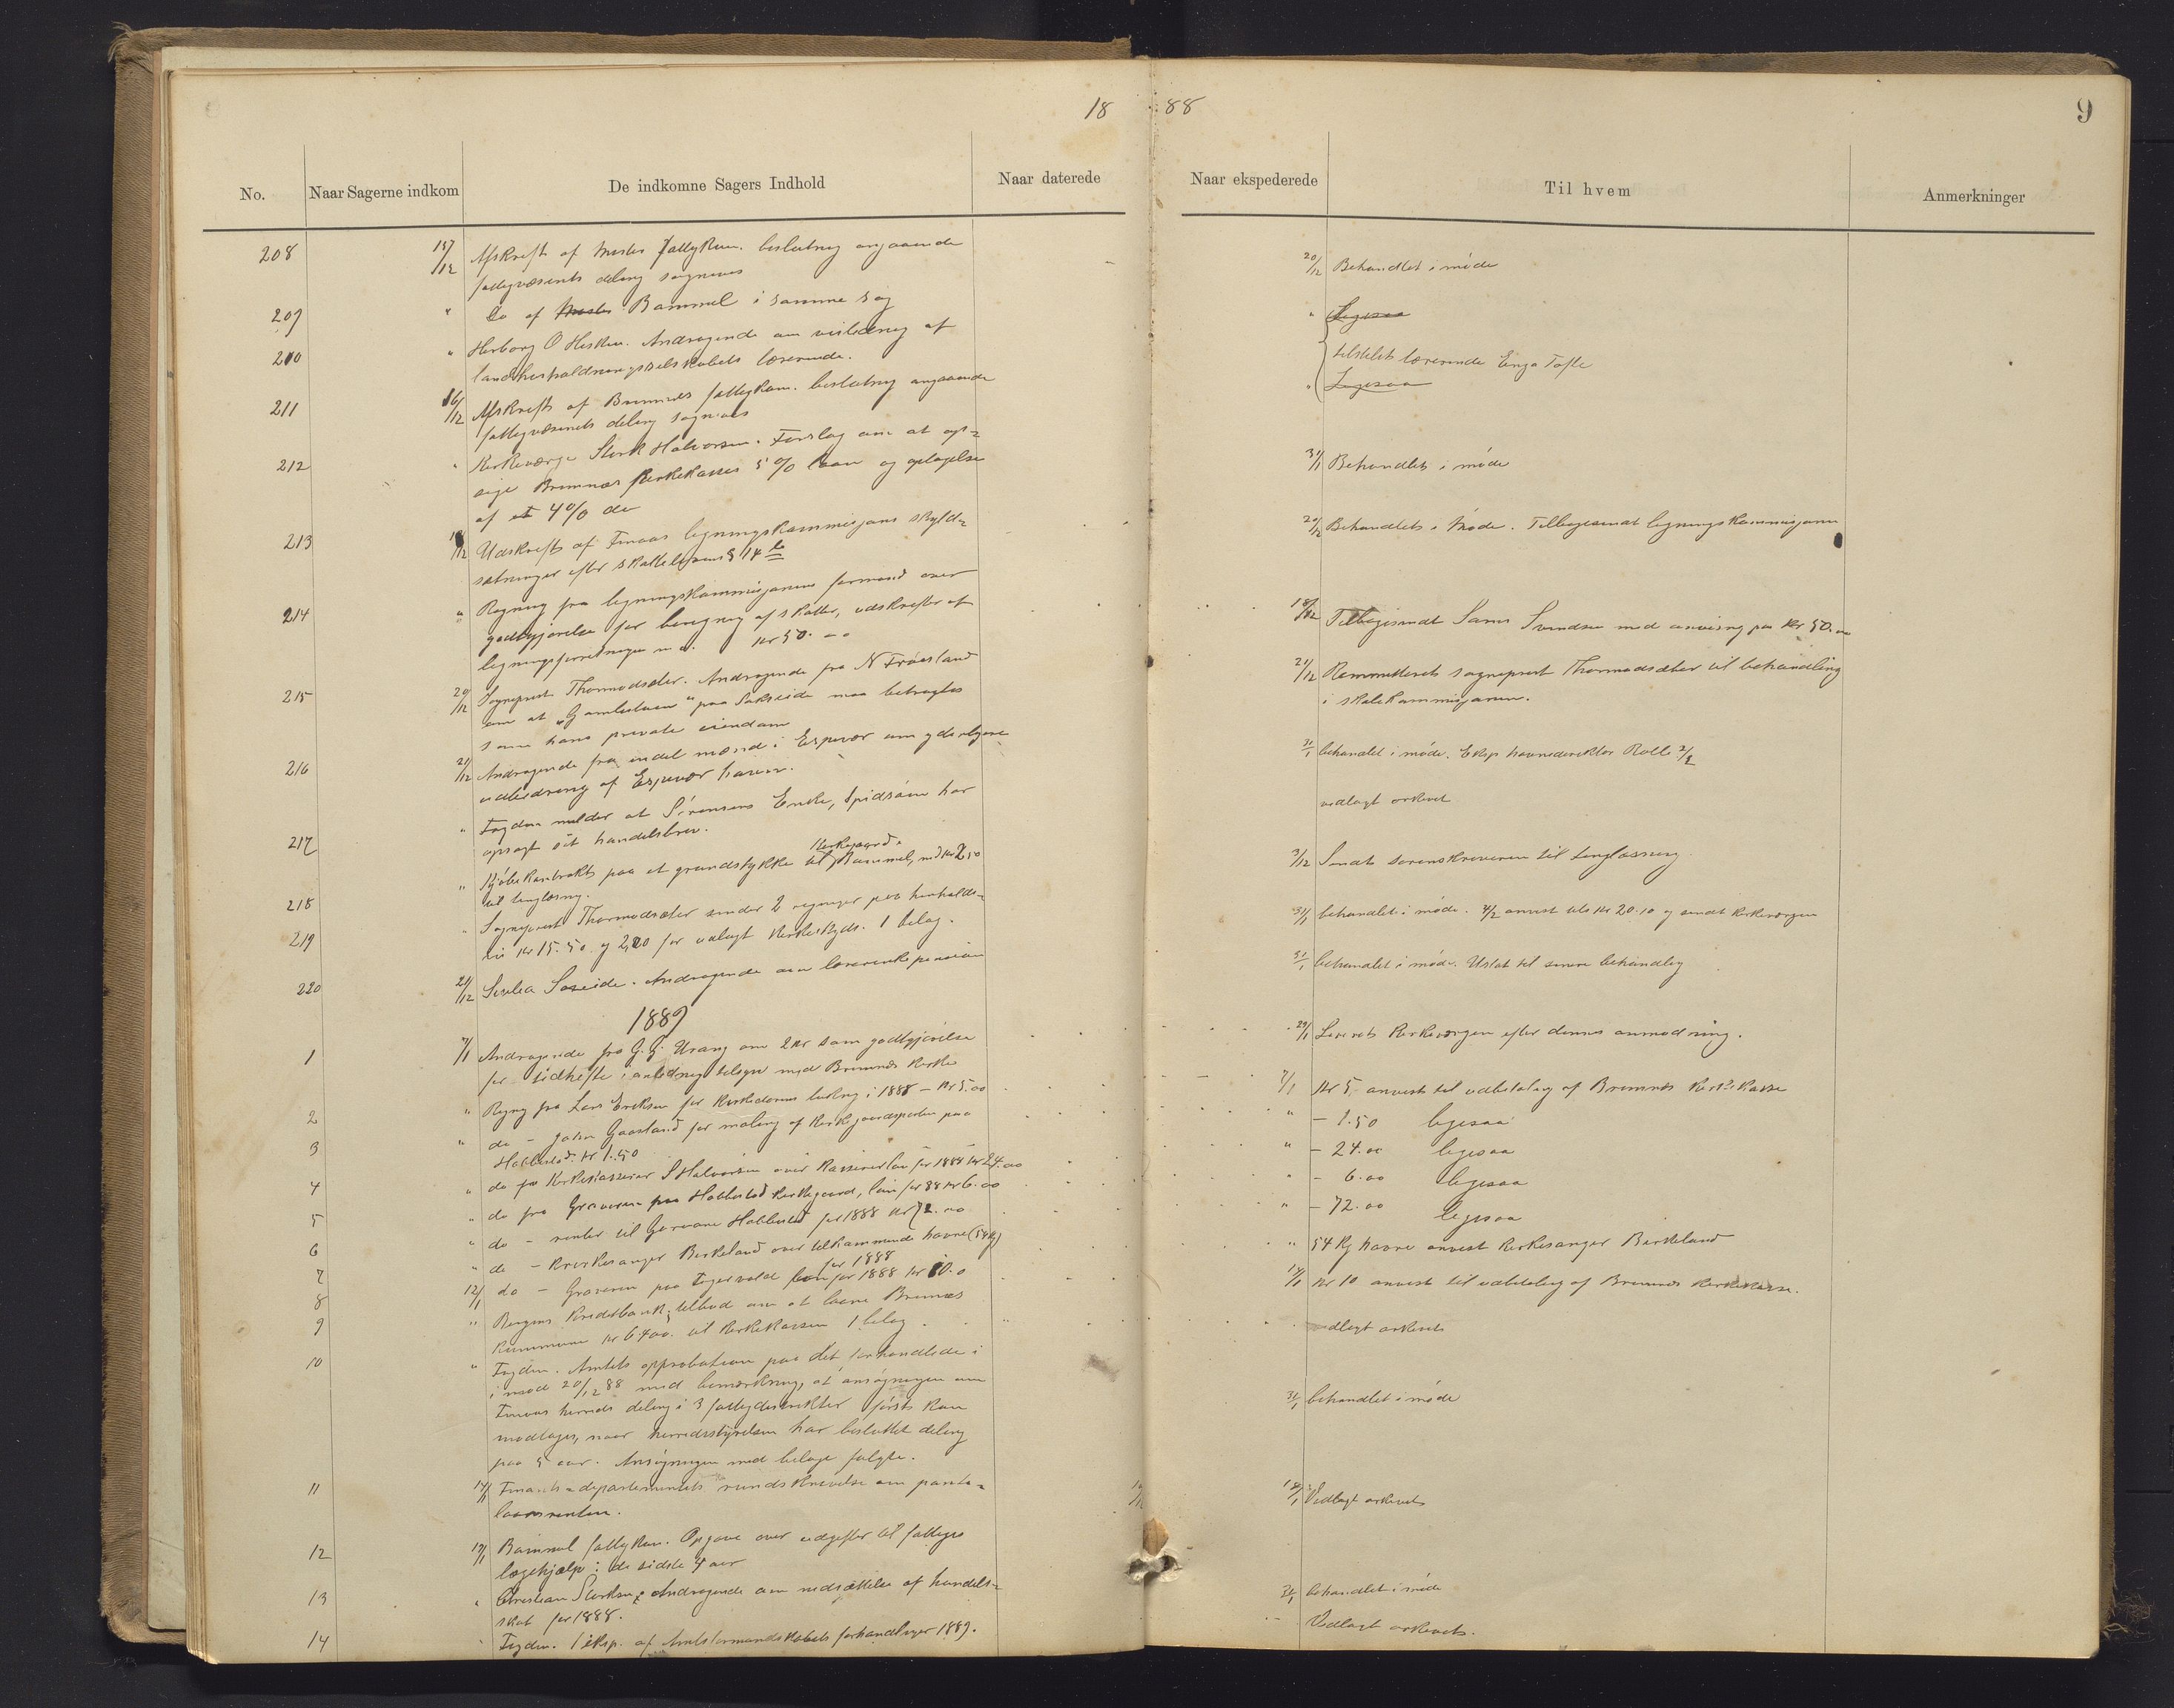 18 88
9
No. Naar Sagerne indkom De indkomne Sagers Indhold Naar daterede Naar ekspederede Til hvem Anmerkninger
208 15/12 Afskrift af Mosters fattigkom. beslutning angaaende
fattigvæsenets deling sognevis
20/12 Behandlet i møde
209 " Do af Mosters Bømmel i samme sag
" Ligesaa
210 " Herborg O Hisken. Andragende om veiledning af
landhusholdningsselskabets lærerinde.
tilstilet lærerinde Enga Tofte
211 16/12 Afskrift af Bremnes fattigkom. beslutning angaaende
fattigvæsenets deling sognevis
" Ligesaa
212 " Kirkeværge Sterk Halvorsen. Forslag om at op-
sige Bremnæs kirkekasses 5 % laan og optagelse
af et 4 % do
31/1 Behandlet i møde
213 18/12 Udskrift af Finaas ligningskommisjons skyld-
sætninger efter skattelovens § 14
20/12 Behandlet i Møde. Tilbagesendt ligningskommisjonen
214 " Regning fra ligningskommisjonens formand over
godtgjørelse for beregning af skatter, udskrifter af
ligningsforretningen m.v. kr 50.00
18/12 Tilbagesendt Svendsen med anvisning paa kr 50.00
215 20/12 Sogneprest Thormodsæter. Andragende fra N Frøvesland
om at "Gamlestuen" paa Sakseide maa betragtes
som hans private eiendom
21/12 Remmitteret sogneprest Thormodsæter til behandling
i skolekommisjonen.
216 21/12 Andragende fra endel mænd i Espevær om yderligere
udbedring af Espevær havn.
31/1 behandlet i møde. Eksp havnedirektør Roll 2/2
217 " Fogden melder at Sørensens Enke, Spidsøen har
opsagt sit handelsbrev.
vedlagt arkivet
218 " Kjøbekontrakt paa et grundstykke til Kirkegaard Bømmel, med kr 2,50
til tinglæsning.
3/12 Sendt sorenskriveren til tinglæsning
219 " Sogneprest Thormodsæter sender 2 regninger paa henholds-
vis kr 15.50 og 2,20 for udlagt kirkeskyds. 1 bilag.
31/1 behandlet i møde. 4/2 anvist tils kr 20.10 og sendt kirkeværgen
220 21/12 Sivlea Søreide. Andragende om lærerinkepension
31/1 behandlet i møde. Udsat til senere behandling
1889
1 7/1 Andragende fra G. G. Urang om 2 kr som godtgjørelse
for tidhefte i anledning tilsyn med Bremnes kirke
29/1 Leveret kirkeværgen efter dennes anmodning.
2 " Regng fra Lars Eriksen for kirkedørens lukning i 1888 - kr 5.00
7/1 kr 5, anvist til udbetaling af Bremnes kirkekasse
3 " do - John Gaasland for maling af kirkegaardsporten paa
Hobbestad. kr 1.50
" - 1.50 ligesaa
4 " do fra kirkekasserer S Halvorsen over kassererløn for 1888 kr 24.00
" - 24.00 ligesaa
5 " do fra Graveren paa Hobbestad kirkegaard, løn for 88 kr 6.00
" - 6.00 ligesaa
6 " do - renter til Hobbestad for 1888 kr 72.00
" - 72.00 ligesaa
7 " do - Kirkesanger Birkeland over tilkommende havre (54 kg)
for 1888
" 54 kg havre anvist kirkesanger Birkeland
8 12/1 do - Graveren paa løn for 1888 kr 10.0
14/1 kr 10 anvist til udbetaling af Bremnes kirkekasse.
9 " Bergens Kreditbank; tilbud om at laane Bremnes
kommune kr 6400. til kirkekassen 1 bilag.
vedlagt arkivet
10 " Fogden. Amtets approbation paa det forhandlede i
i mød 20/12 88 med bemærkning, at ansøgningen om
Finaas herreds deling i 3 fattigdistrikter først kan
modtages, naar herredsstyrelsen har besluttet deling
paa 5 aar. Ansøgningen med bilage følgte.
31/1 behandlet i møde
11 14/1 Finants-departementets rundskrivelse om pante-
laansrenten.
18/1 Vedlagt arkivet
12 19/1 Bømmel fattigkom. Opgave over udgifter til fattiges
lægehjælp i de sidste 4 aar
13 " Christian Sterksen; Andragende om nedsættelse af handels-
skat for 1888.
31/1 behandlet i møde
14 " Fogden. 1 eksp. af Amtsformandskabets forhandlinger 1889.
Vedlagt arkivet.